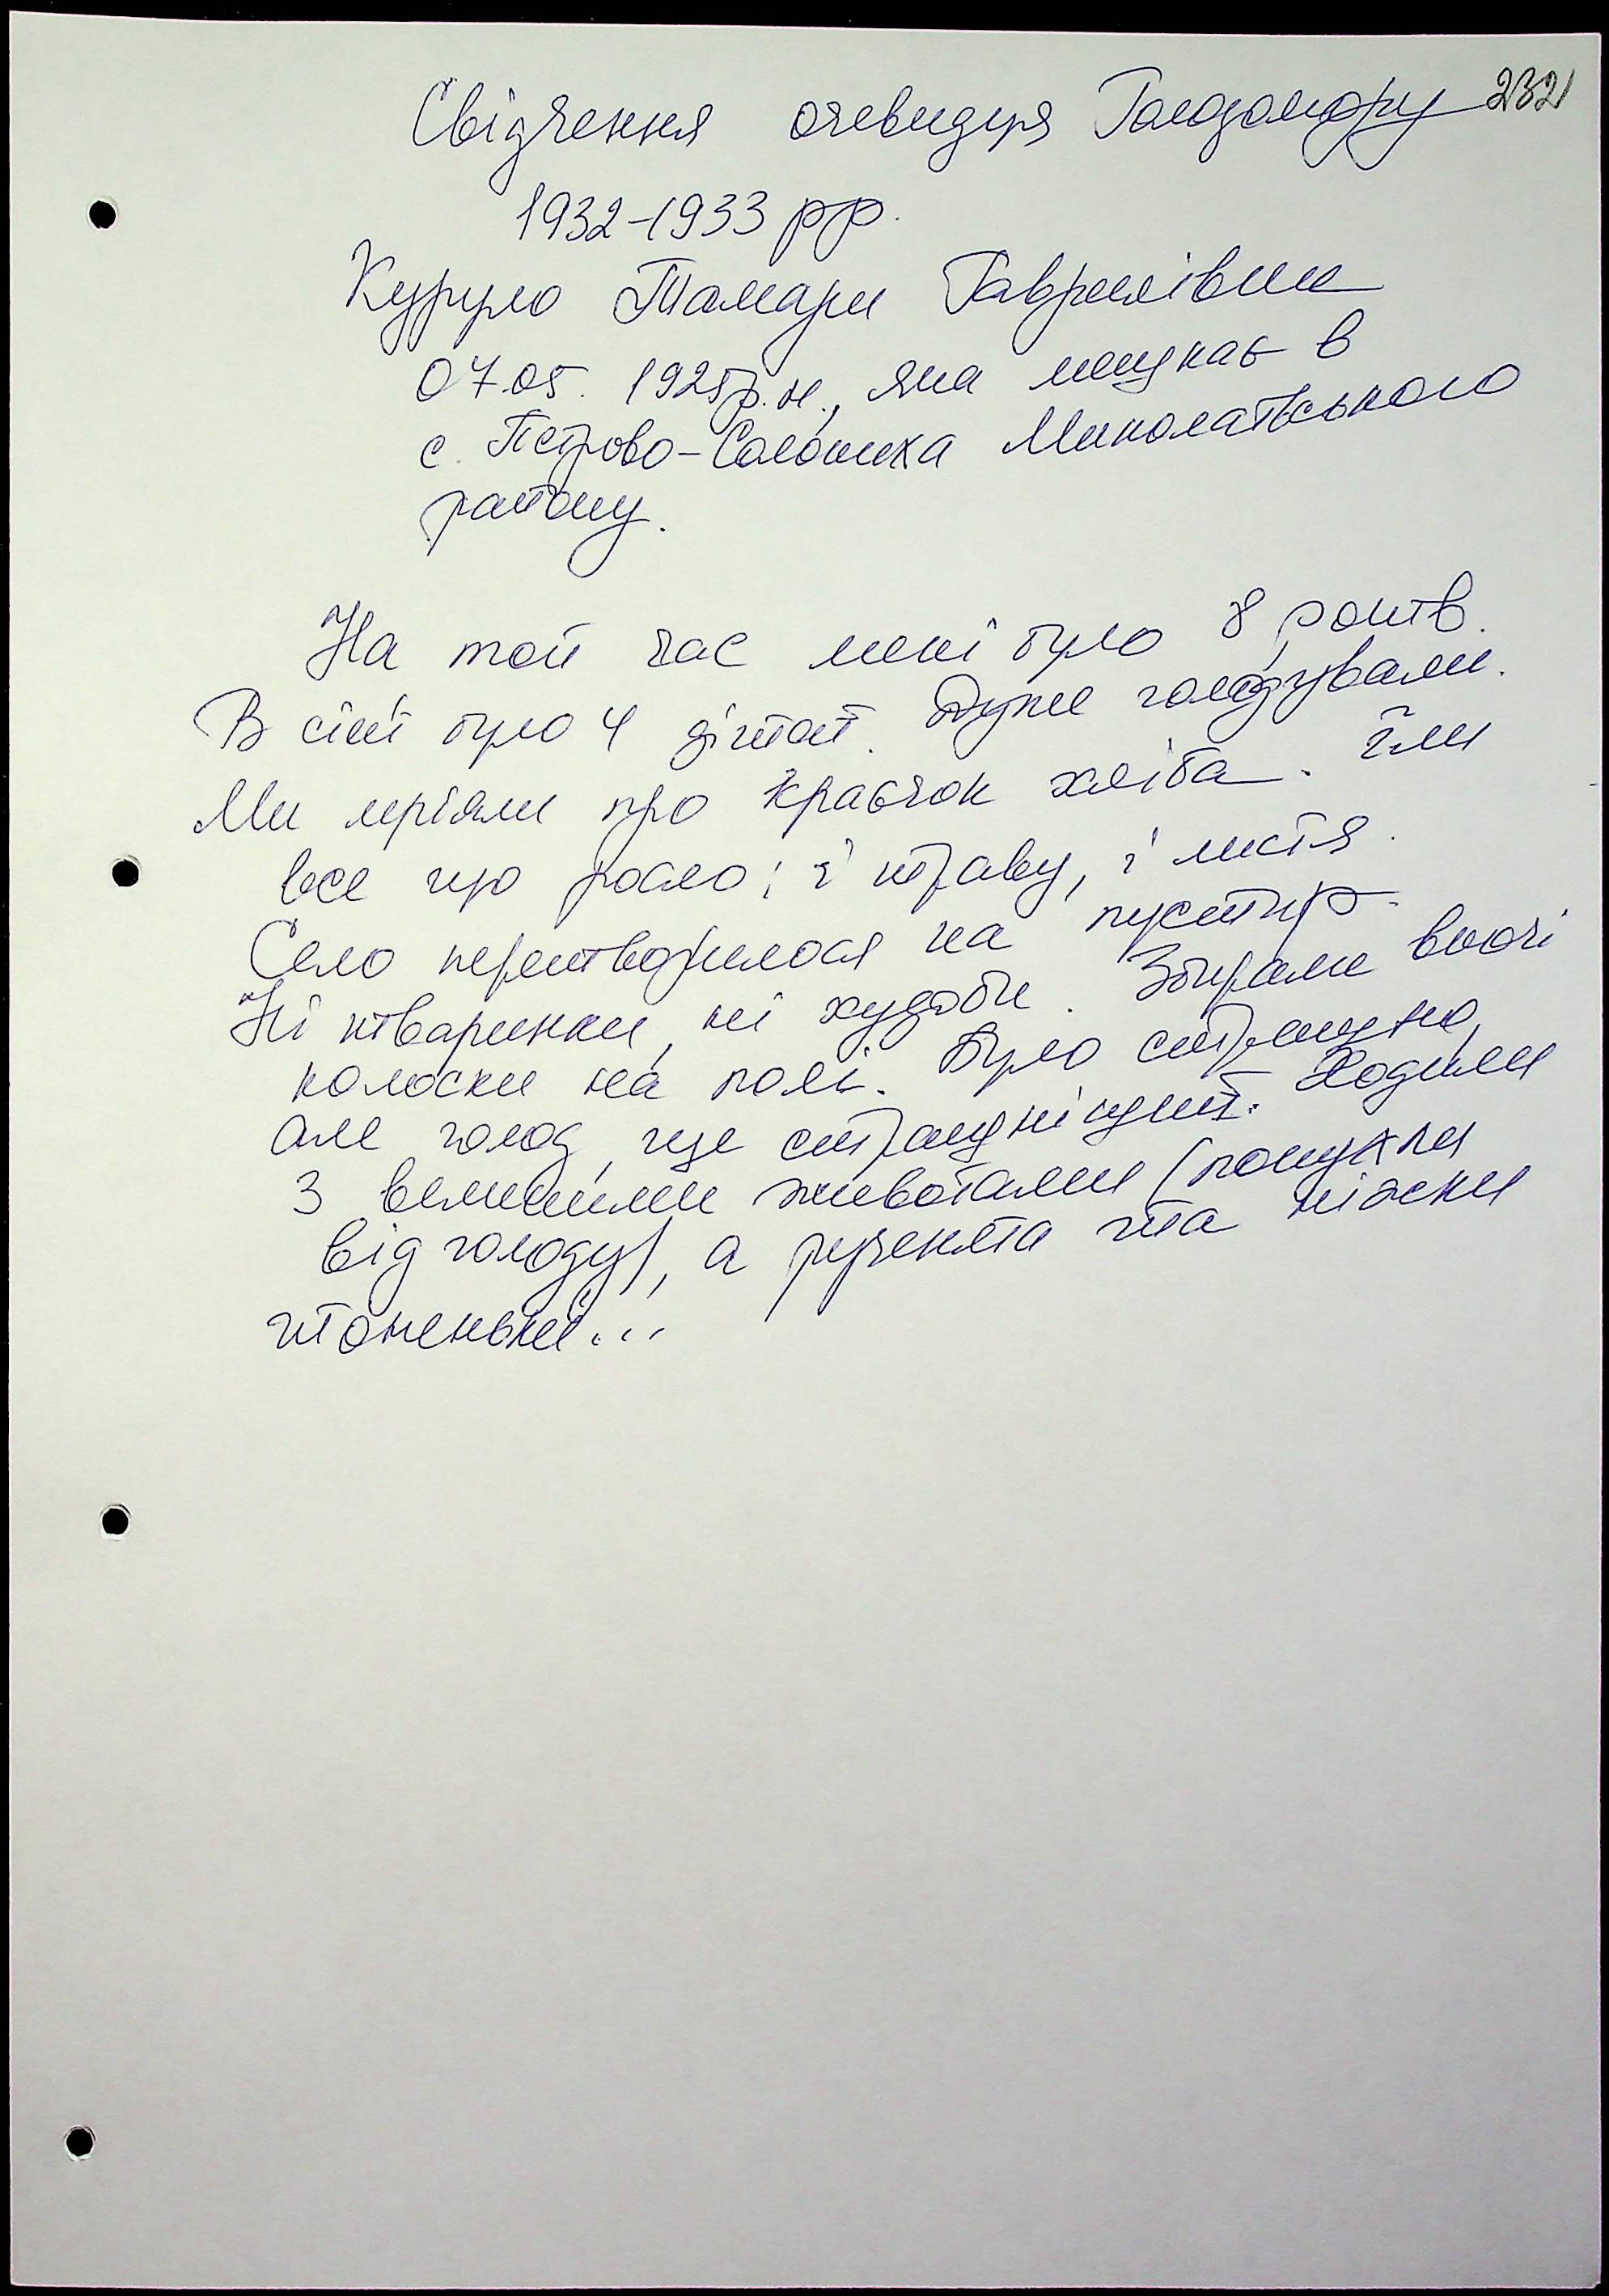 Свідчення очевидця Голодомору 232
1932-1933 рр.
Тамари Гаврилівни
07.05. 1925р.н., яка мешкає в
с. Петрово-Солониха Миколаївського
району.
На той час мені було 8 років.
В сімї було 4 дітей. Дуже голодували.
Ми мріяли про краєчок хліба. Їли
все що росло; і траву, і листя.
Село перетворилося на пустир.
Ні тваринки, ні худоби. Збирали вночі
колоски на полі. Було страшно,
але голод, ще страшніший. Ходили
з великими животами (попухли
від голоду), а рученята та ніжки
тоненькі...